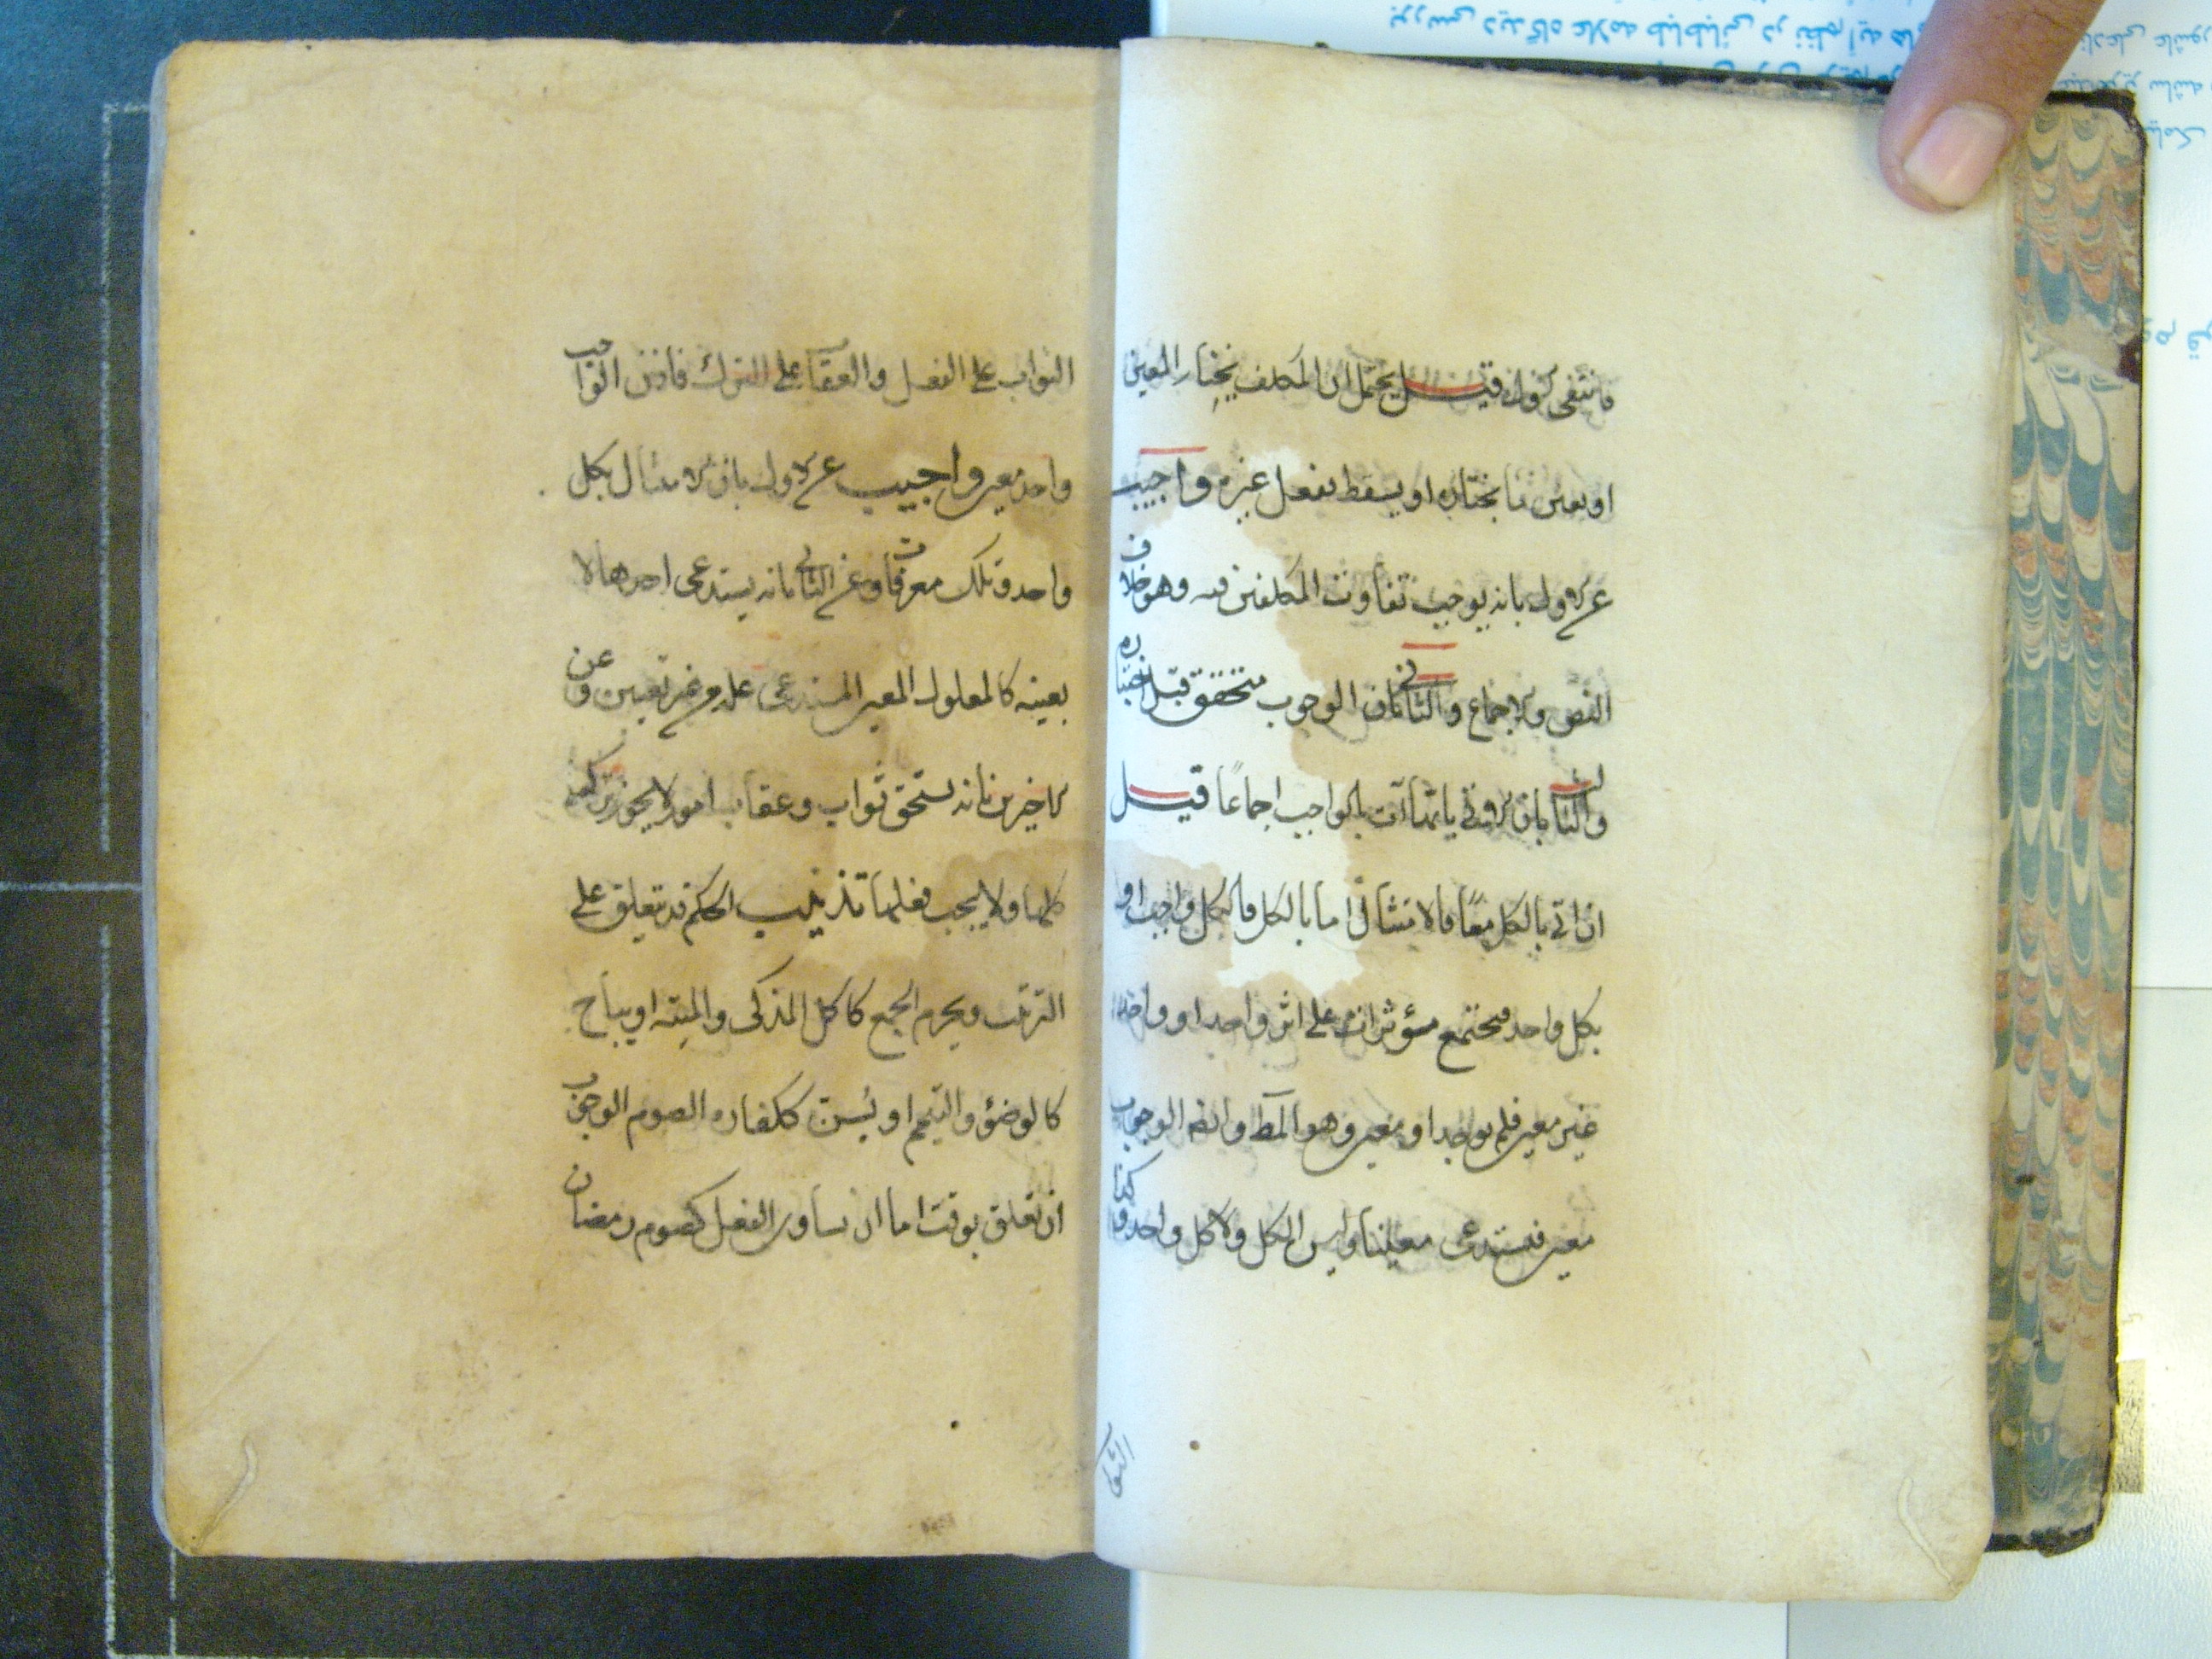 فانتفى الاول قيل يحتمل ان المكلف يختار المعين
او يعين ما يختاره او يسقط بفعل غيره واجيب
عن الاول بانه يوجب تفاوت المكلفين فيه وهو خلاف
النص والاجماع والثاني بان الوجوب متحقق قبل اختياره
والثالث بان الاتي بايتها آت بالواجب اجماعًا قيل
ان اتى بالكل معًا فالامتثال اما بالكل فالكل واجب او
بكل واحد فيجتمع مؤثرات على اثر واحد او واحد
غير معين فلم يوجد او معين وهو المط وايضا الوجوب
معين فيستدعى معينا وليس الكل ولا كل واحد وكذا
الثواب
الثواب على الفعل والعقاب على الترك فاذن الواجب
واحد معين واجيب عن الاول بان الامتثال بكل
واحد وتلك معرفات وعن الثاني بانه يستدعى احدها لا
بعينه كالمعلول المعين المستدعى علة من غير تعيين وعن
الاخيرين بانه يستحق ثواب وعقاب امور لا يجوز ترك
كلها ولا يجب فعلها تذنيب الحكم قد يتعلق على
الترتيب ويحرم الجمع كاكل المذكى والميتة او يباح
كالوضؤ والتيمم او يسن ككفارة الصوم الوجوب
ان تعلق بوقت اما ان يساوى الفعل كصوم رمضان